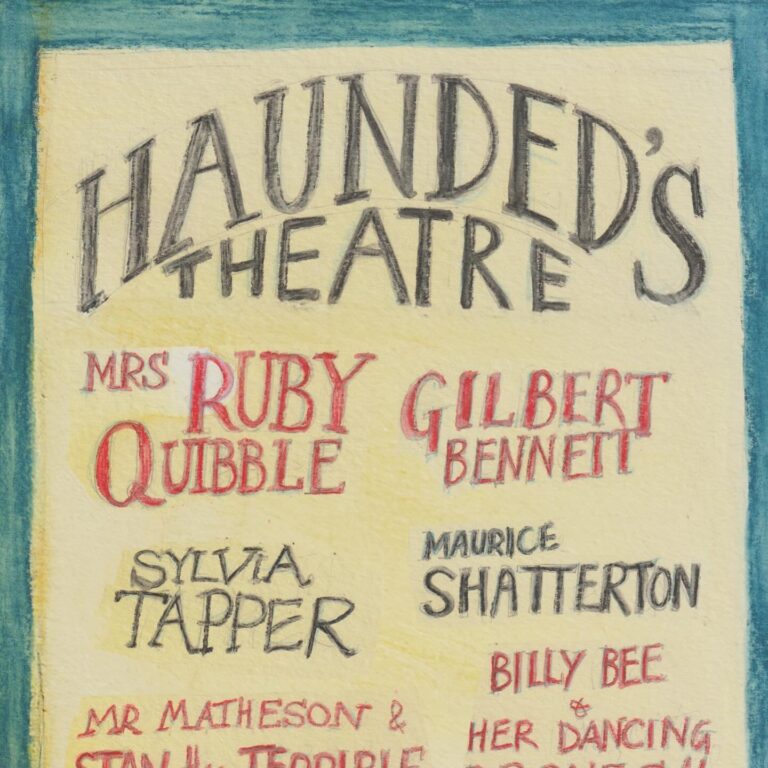 HAUNDED'S
THEATRE
MRS RUBY
QUIBBLE
GILBERT
BENNETT
SYLVIA
TAPPER
MAURICE
SHATTERTON
BILLY BEE
&
HER DANCING
MR MATHESON &
STAN THE TERRIBLE